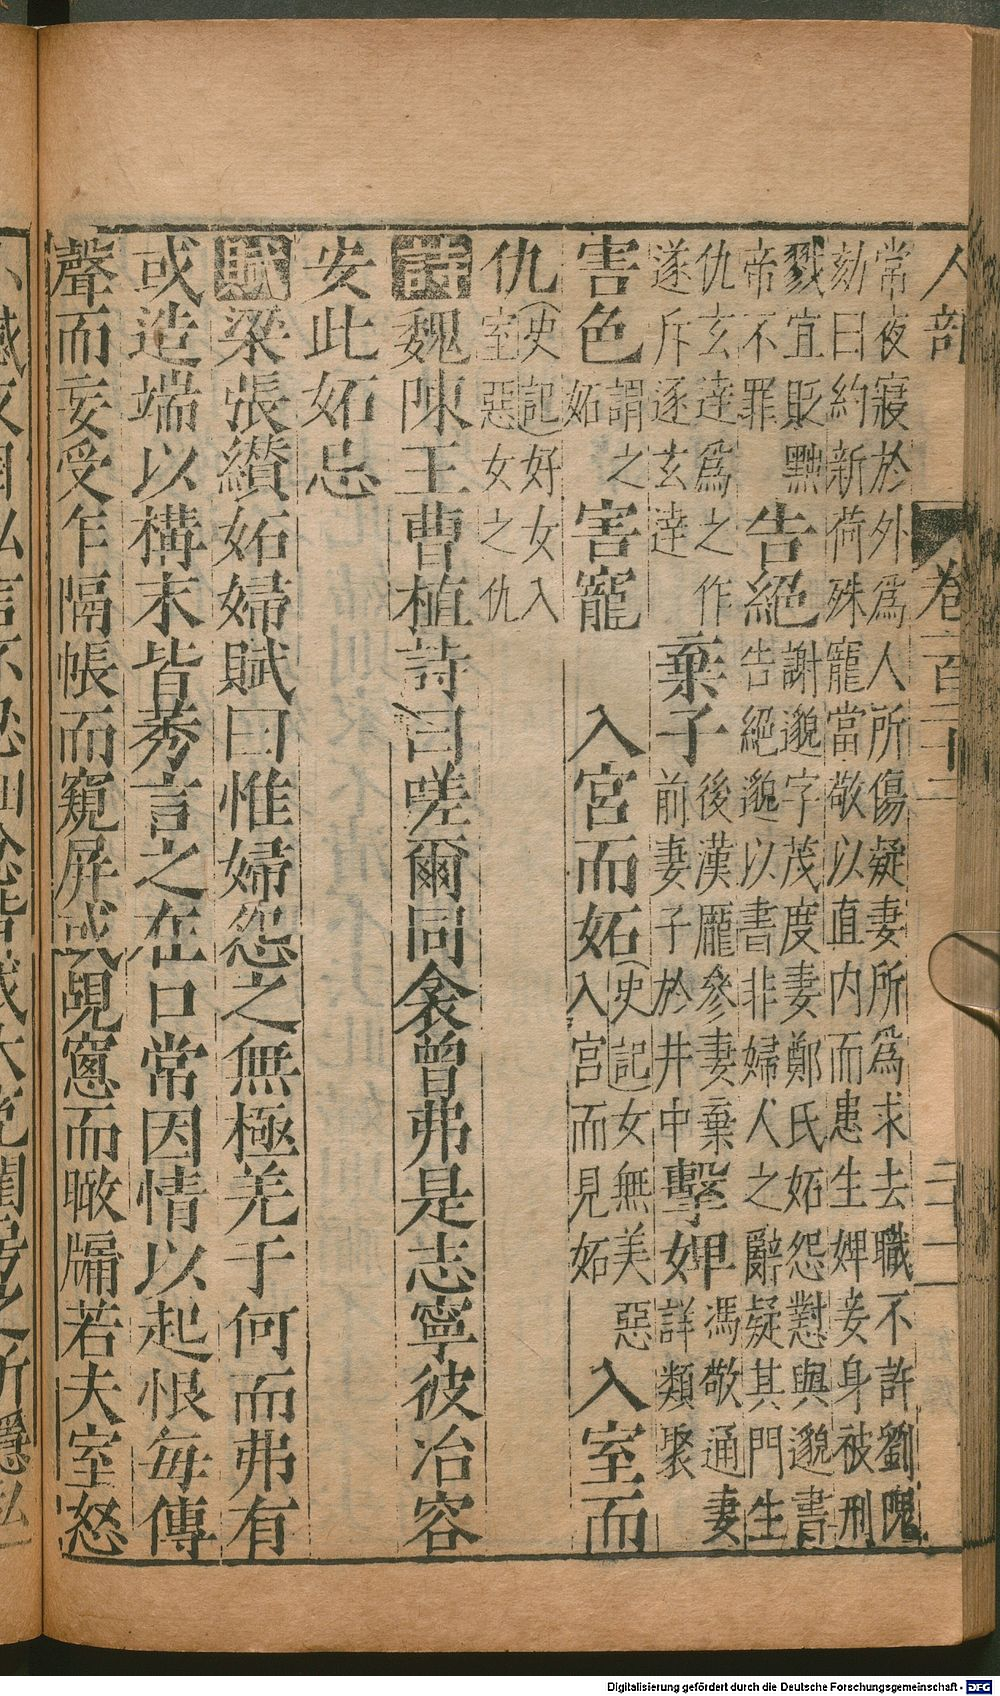 人部 卷一百二十二 二十一
常夜寢於外爲人所傷疑妻所爲求去職不許劉隗
劾曰約新荷殊寵當敬以直内而患生婢妾身被刑
戮宜貶黜 告絕 謝邈字茂度妻鄭氏妬怨懟與邈書
帝不罪 告絕邈以書非婦人之辭疑其門生
仇玄達爲之作 棄子 後漢龐參妻棄 擊婢 馮敬通妻
遂斥逐玄達 前妻子於井中 詳類聚
害色 謂之妬 害寵 入宮而妬 (史記)女無美惡入宮而見妬 入室而
仇 (史記)好女入室惡女之仇
詩 魏陳王曹植詩曰嗟爾同衾曾弗是志寧彼冶容
安此妬忌
賦 梁張纘妬婦賦曰惟婦怨之無極羌于何而弗有
或造端以構末皆莠言之在口常因情以起恨每傳
聲而妄受乍隔帳而窺屏或覘窻而瞰牖若夫室怒
Digitalisierung gefördert durch die Deutsche Forschungsgemeinschaft - DFG